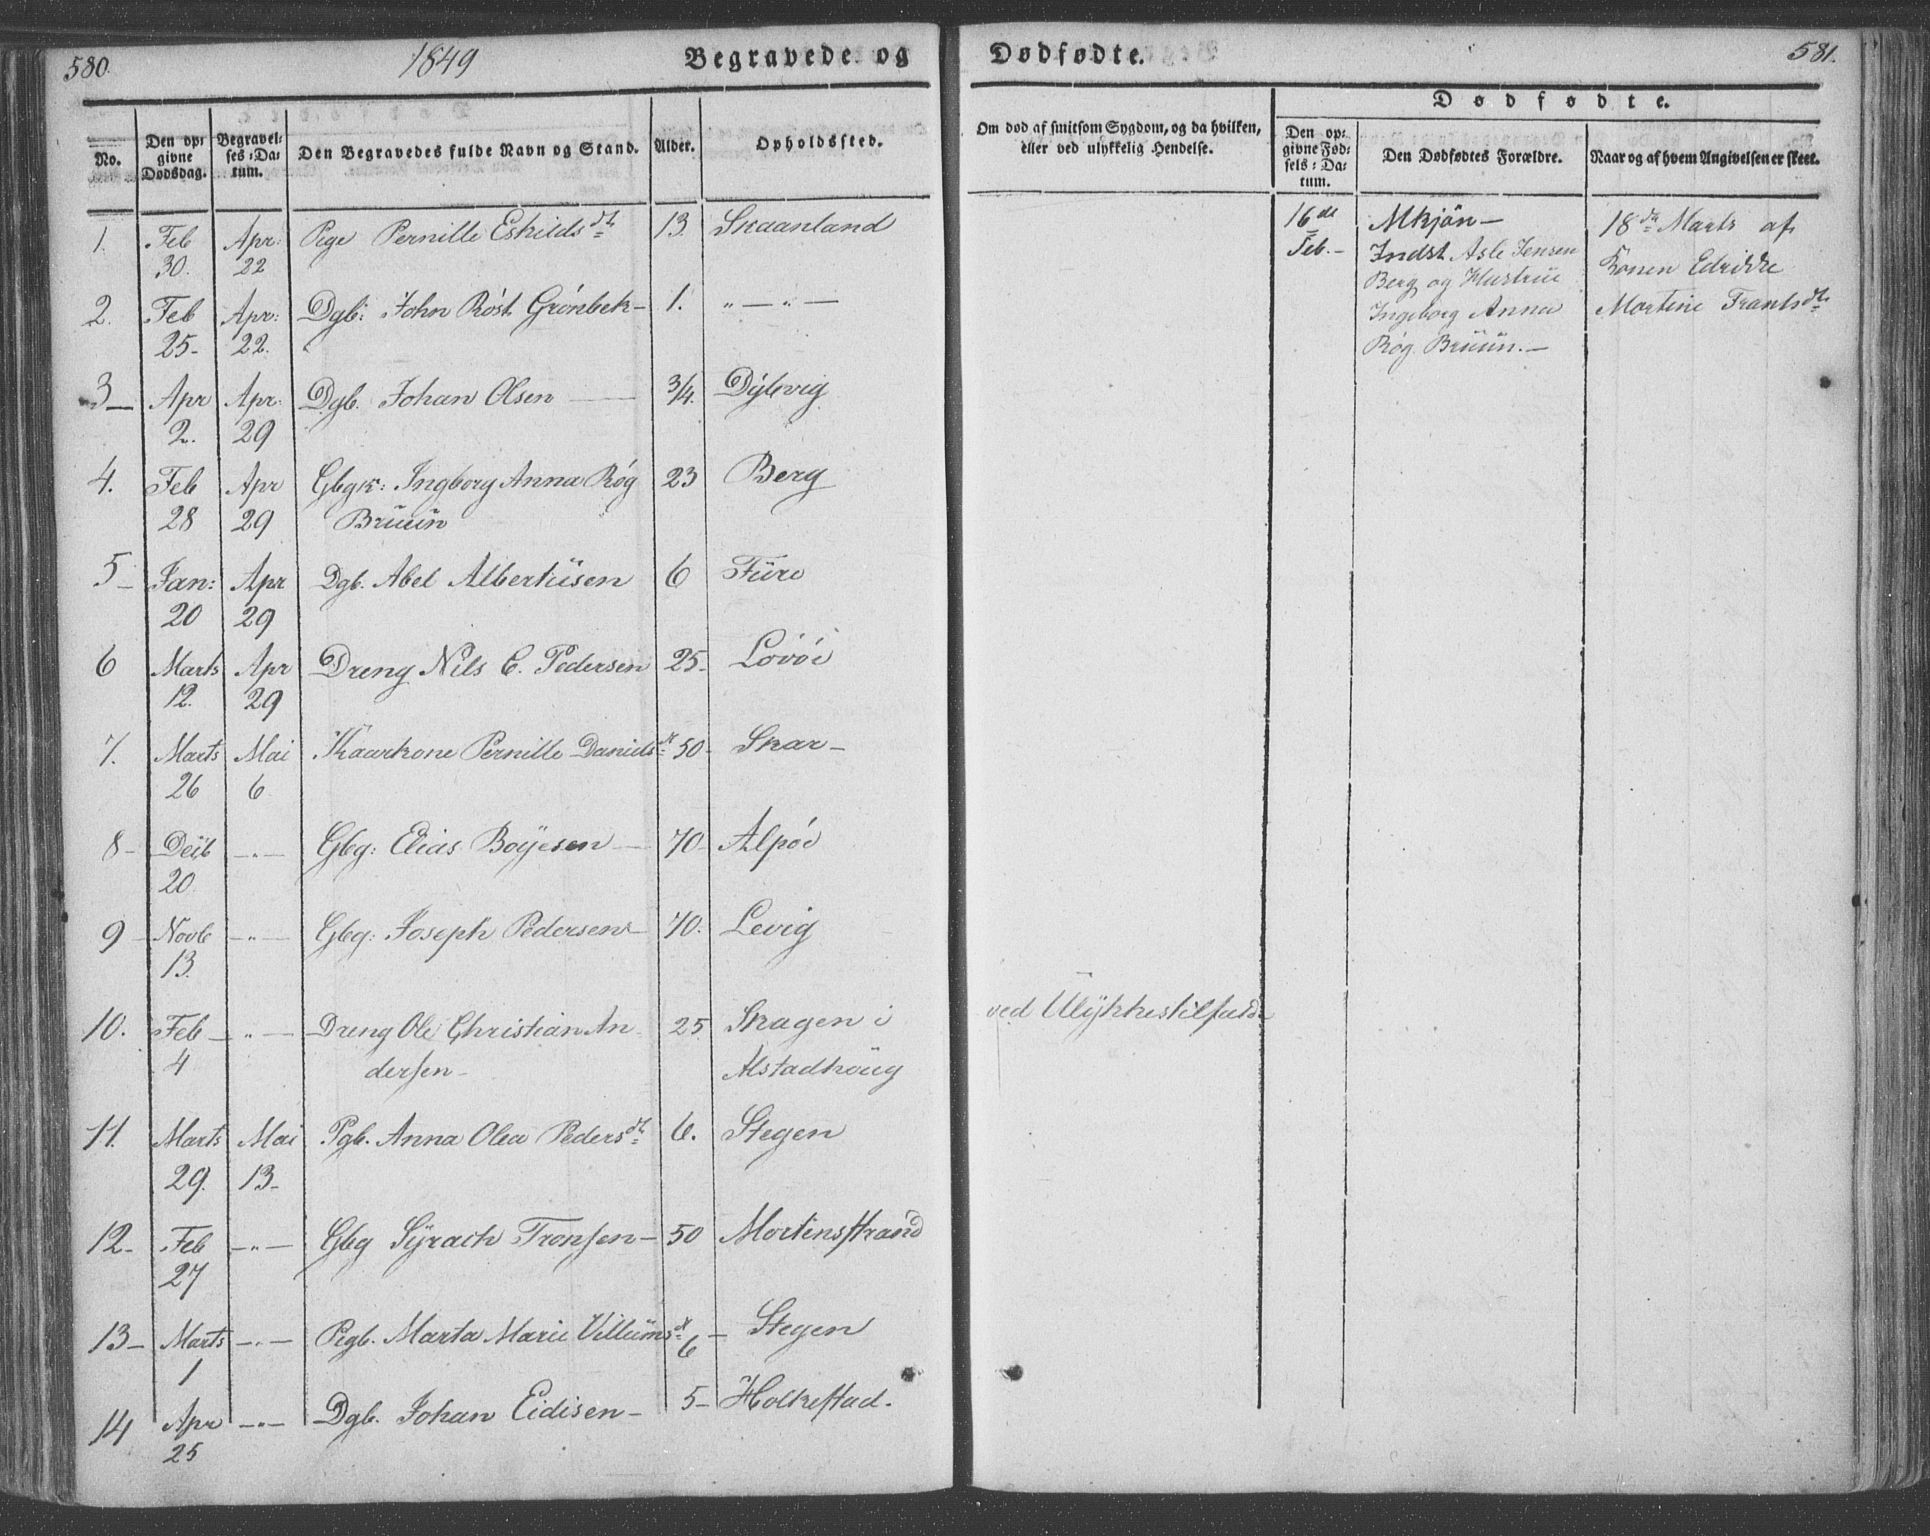 580.
1849
Begravede og
Dødfødte.
581.
No.
Den opgivne Dødsdag.
Begravelses-Datum.
Den Begravedes fulde Navn og Stand.
Alder.
Opholdssted.
Om død af smitsom Sygdom, og da hvilken,
eller ved ulykkelig Hendelse.
Dødfødte.
Den opgivne Fødsels-Datum.
Den Dødfødtes Forældre.
Naar og af hvem Angivelsen er skeet.
1. Feb 30. Apr: 22 Pige Pernille Eskildsdt. 13. Skaanland
2. Feb 25- Apr: 22. Dgb: John Røst Grønbek- 1. „ — „ —
3- Apr 2. Apr: 29 Dgb. Johan Olsen — 3/4. Dybvig
4. Feb 28 Apr 29 Gbgk: Ingborg Anna Røg 23 Berg
Bruun
5- Jan: 20 Apr 29 Dgb. Abel Albertusen 6 Fure
6 Marts 12. Apr 29 Dreng Nils E. Pedersen 25- Løvøe
7. Marts 26 Mai 6 Kaarkone Pernille Danielsdt 50- Skar-
8- 20 —„— Gbg: Elias Boyesen — 70- Alpøe
9- Novb 13. —„— Gbg: Joseph Pedersen- 70. Levig
10. Feb 4 —„— Dreng Ole Christian An- 25 Skagen i
dersen- Alstadhoug
ved Ulykkestilfælde
11. Marts 29. Mai 13- Pgb. Anna Olea Pedersdt. 6. Stegen
12- Feb 27 —„— Gbg Syrach Tronsen- 50 Mortensstrand
13- Marts 1 —„— Pigb. Marta Marie Villumsdt 6 - Stegen
14 Apr 25 —„— Dgb. Johan Eidisen- 5- Holkestad.
16de Feb.-
Mkjøn-
Indst Asle Jensen
Berg og Hustrue
Ingeborg Anna
Røg Bruun.-
18de Marts af
Konen Edrikke
Martine Frantsdt.